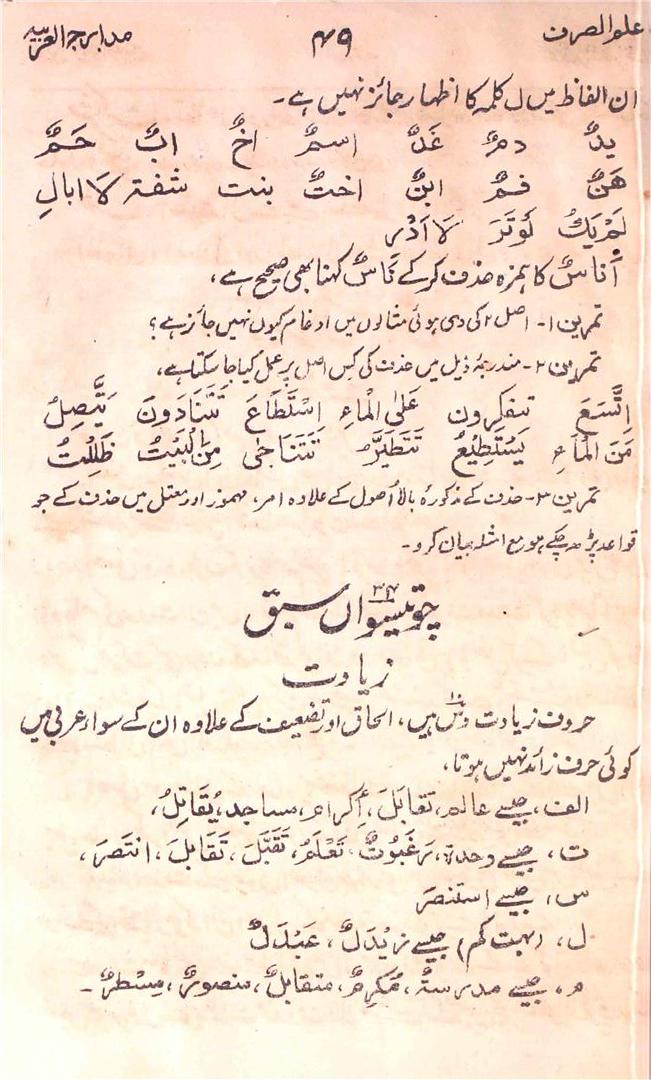 علم الصرف ۴۹ مدارج العربیہ
ان الفاظ میں ل کلمہ کا اظہار جائز نہیں ہے۔
یدٌ دمٌ غَدٌ اسمٌ اخٌ ابٌ حَمٌ
هَنٌ فمٌ ابنٌ اختٌ بنت شفۃ لَا ابالِ
لَمْ يَكُ لَوْ تَرَ لَا اَدْرِ
أناسٌ کا ہمزہ حذف کر کے نَاسٌ کہنا بھی صحیح ہے،
تمرین ۱- اصل ۲ کی دی ہوئی مثالوں میں ادغام کیوں نہیں جائز ہے؟
تمرین ۲- مندرجۂ ذیل میں حذف کی کس اصل پر عمل کیا جا سکتا ہے،
اِتَّسَعَ تتفکرون عَلَی الْمَاءِ اِسْتَطَاعَ تَتَنَادَونَ يَتَّصِلُ
مَنَ الْمَاءِ يَسْتَطِيْعُ تَتَطَيَّرُ تَتَنَاجٰی مِنَ الْبَيْتِ ظَلِلْتُ
تمرین ۳- حذف کے مذکورہ بالا اُصول کے علاوہ امر، مہموز اور معتل میں حذف کے جو
قواعد پڑھ چکے ہو مع امثلہ بیان کرو۔
چوتیسواں ۳۴ سبق
زیادت
حروف زیادت دس ۱۰ ہیں، الحاق اور تضعیف کے علاوہ ان کے سوا، عربی میں
کوئی حرف زائد نہیں ہوتا،
الف، جیسے عالم، تقابَلَ، اِکرام، مساجد، یُقَاتِلُ،
ت، جیسے وحدۃ، رَغَبُوتٌ، تَعْلَمُ، تَقَبَّلَ، تَقَابَلَ، انتَصَرَ،
س، جیسے استنصَرَ
ل، (بہت کم) جیسے زیْدَلٌ، عَبْدَلٌ
م، جیسے مدرسۃٌ، مُکرِمٌ، متقابلٌ، منصورٌ، مِسْطَرٌ۔